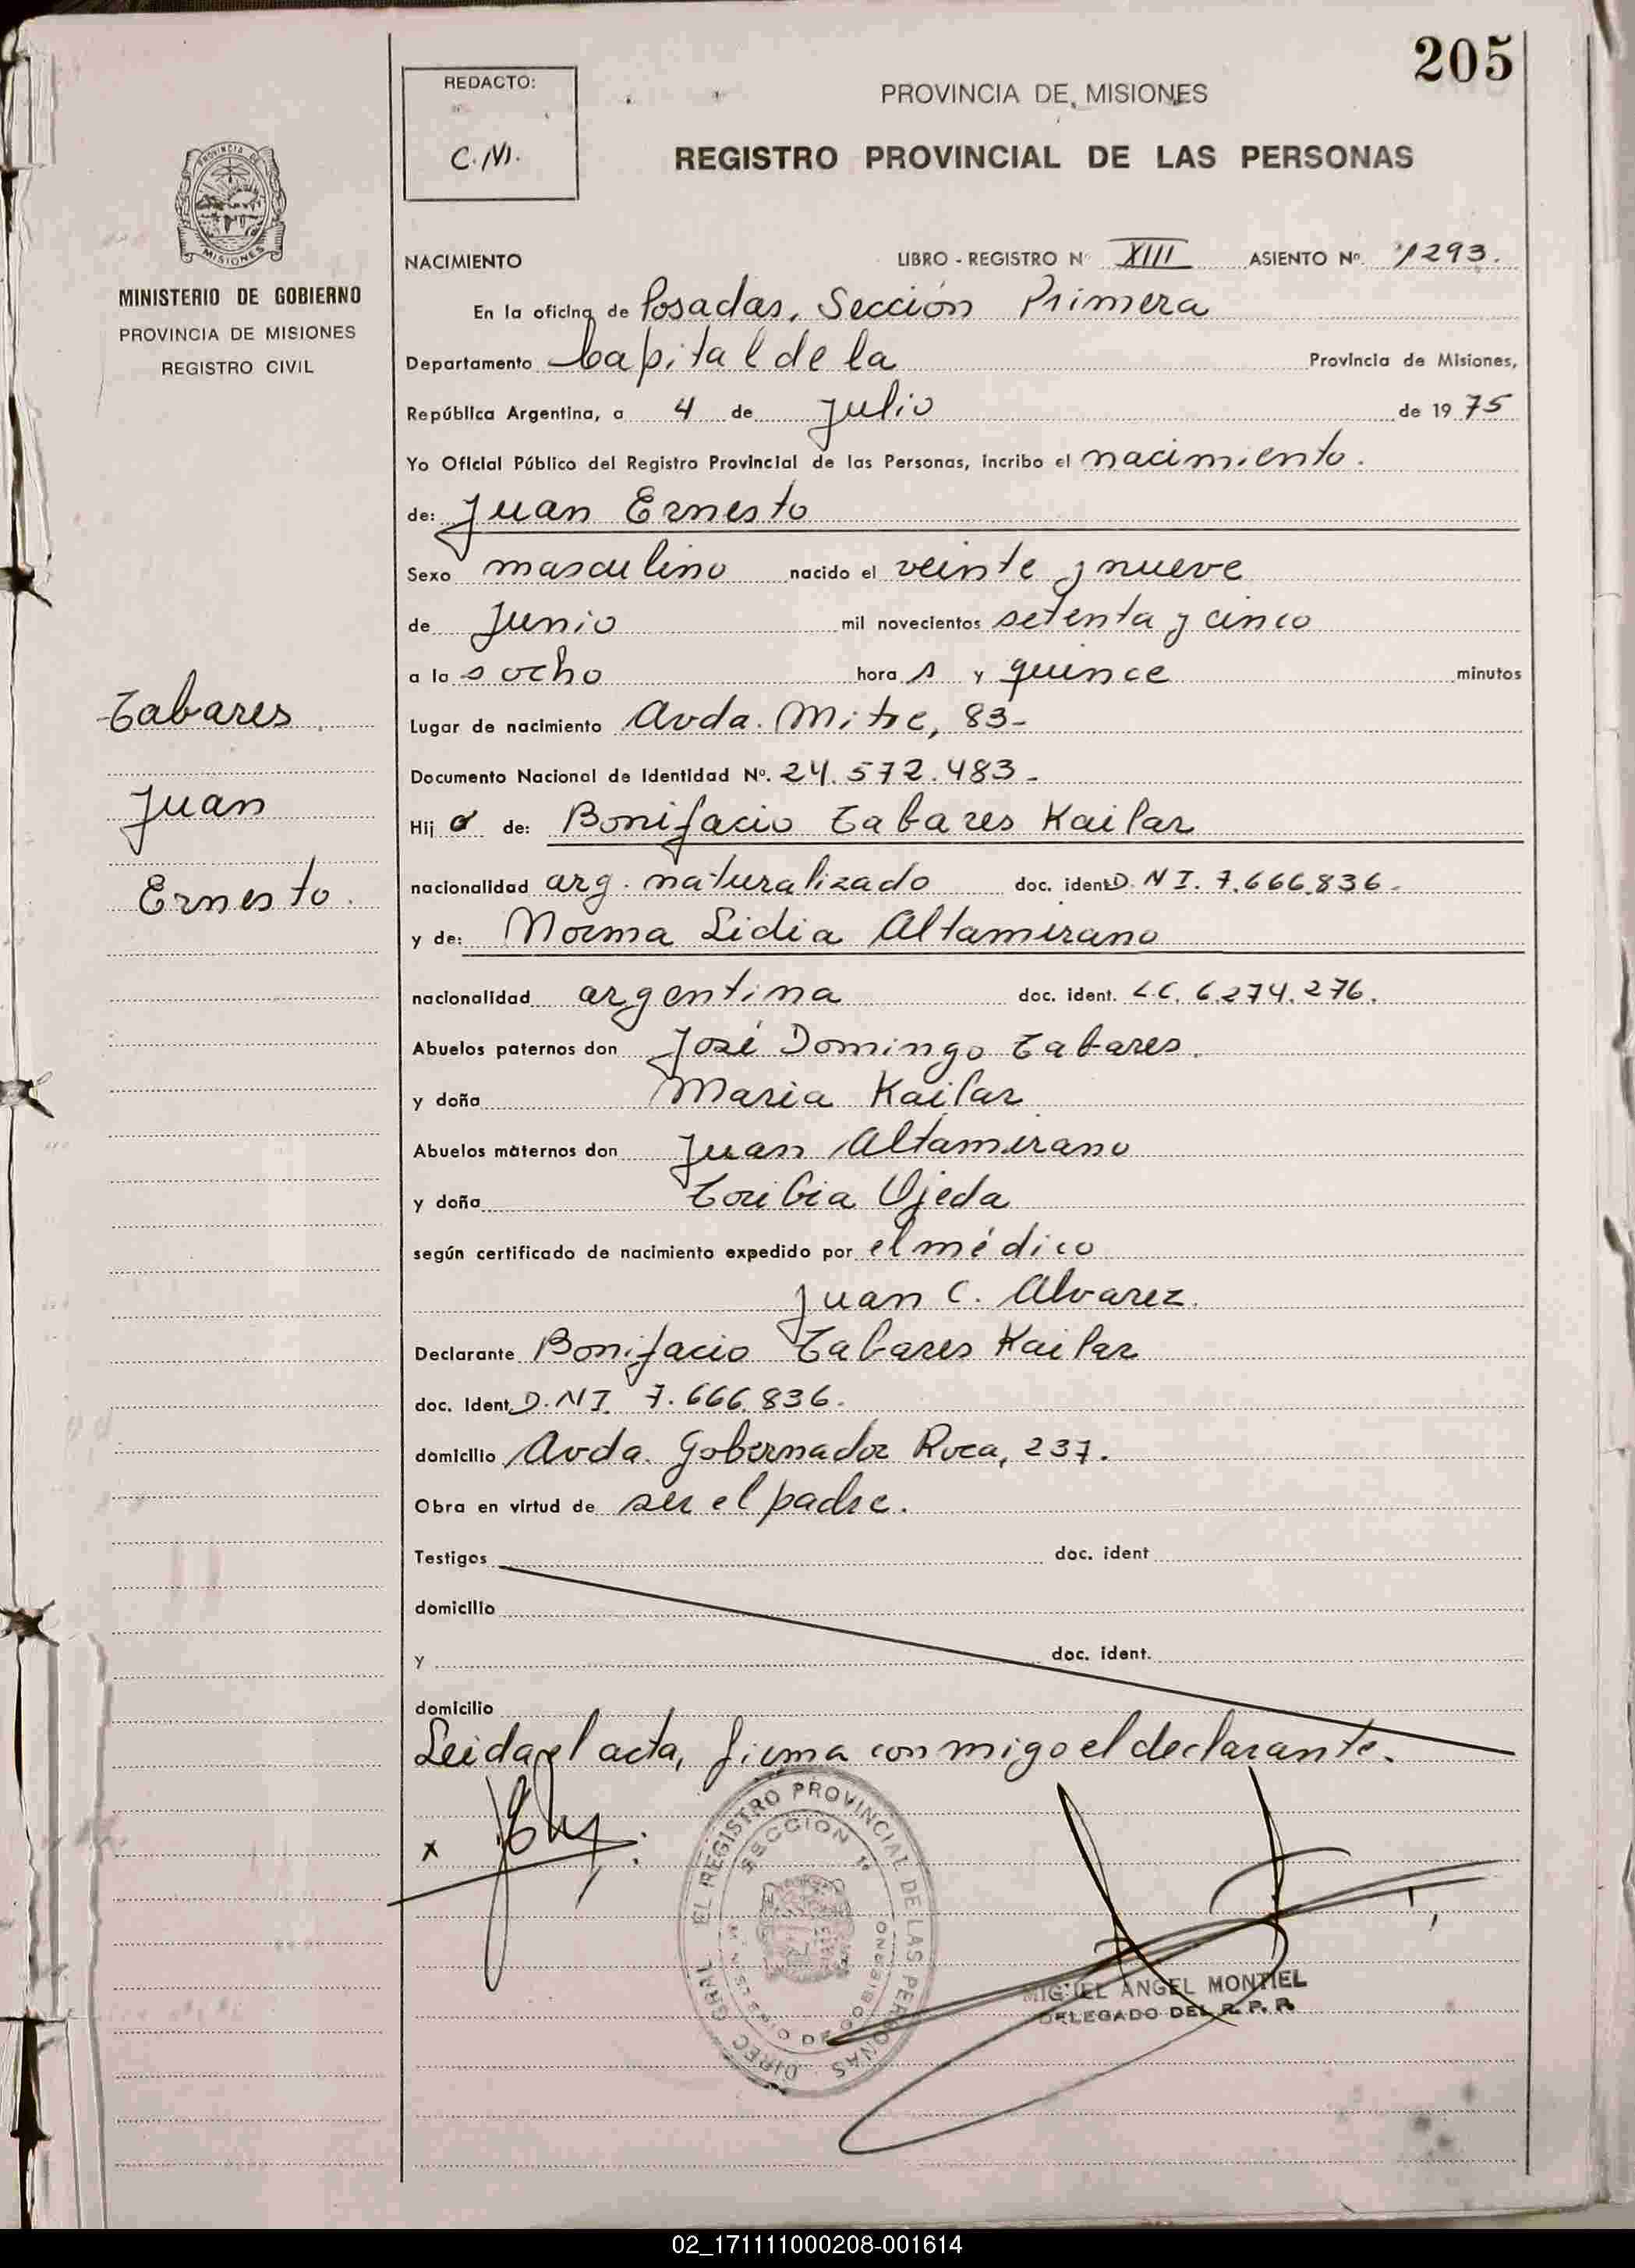 205
REDACTO:
C. M.
PROVINCIA DE MISIONES
REGISTRO PROVINCIAL DE LAS PERSONAS
PROVINCIA DE
MISIONES
MINISTERIO DE GOBIERNO
PROVINCIA DE MISIONES
REGISTRO CIVIL
Tabares
Juan
Ernesto.
NACIMIENTO LIBRO - REGISTRO Nº XIII ASIENTO Nº. 1293.
En la oficina de Posadas, Sección Primera
Departamento Capital de la Provincia de Misiones,
República Argentina, a 4 de Julio de 19 75
Yo Oficial Público del Registro Provincial de las Personas, incribo el nacimiento.
de: Juan Ernesto
Sexo masculino nacido el veinte y nueve
de Junio mil novecientos setenta y cinco
a la s ocho hora s y quince minutos
Lugar de nacimiento Avda. Mitre, 83-
Documento Nacional de Identidad Nº. 24.572.483-
Hij o de: Bonifacio Tabares Kailar
nacionalidad arg. naturalizado doc. ident D.N I. 7.666.836-
y de: Norma Lidia Altamirano
nacionalidad argentina doc. ident. L C. 6.274.276.
Abuelos paternos don José Domingo Tabares.
y doña Maria Kailar
Abuelos maternos don Juan Altamirano
y doña Toribia Ojeda
según certificado de nacimiento expedido por el médico
Juan C. Alvarez.
Declarante Bonifacio Tabares Kailar
doc. Ident. D.N I. 7.666.836.
domicilio Avda. Gobernador Roca, 237.
Obra en virtud de ser el padre.
Testigos doc. ident
domicilio
y doc. ident.
domicilio
Leida el acta, firma conmigo el declarante.
x
DIREC. GRAL. EL REGISTRO PROVINCIAL DE LAS PERSONAS
SECCION 1ª
MIGUEL ANGEL MONTIEL
DELEGADO DEL R. P. P.
02_171111000208-001614